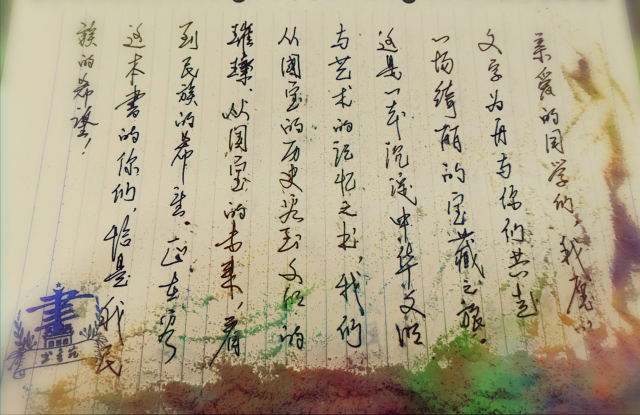 亲爱的同学们,我愿以
文字为舟与你们共赴
一场绮丽的宝藏之旅.
这是一本沉淀中华文明
与艺术的记忆之书,我们
从国宝的历史看到文明的
璀璨.从国宝的未来,看
到民族的希望.正在看
这本书的你们,恰是我民
族的希望!
書